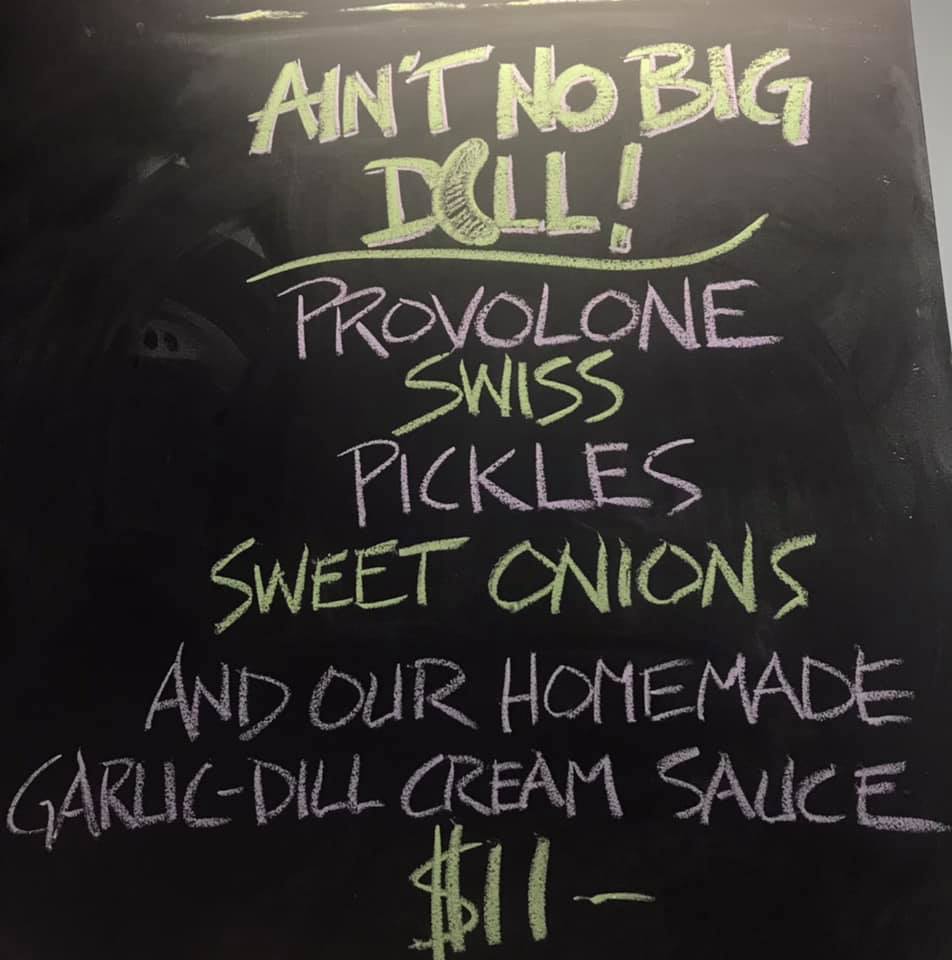 AIN'T NO BIG
DILL!
PROVOLONE
SWISS
PICKLES
SWEET ONIONS
AND OUR HOMEMADE
GARLIC-DILL CREAM SAUCE
$11-